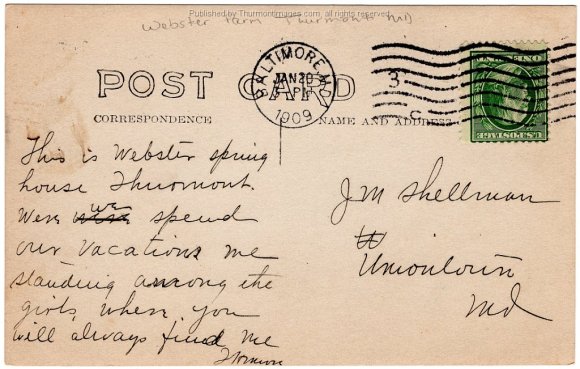 Published by Thurmontimages.com, all rights reserved
Webster Farm Thurmont MD
POST CARD
BALTIMORE, MD.
JAN 20
PM
1909
3
CORRESPONDENCE
NAME AND ADDRESS
U.S. POSTAGE
ONE CENT
This is Webster spring
house Thurmont.
Were we spend
our vacations me
standing among the
girls, where you
will always find me
J M Shellman
Uniontown
Md